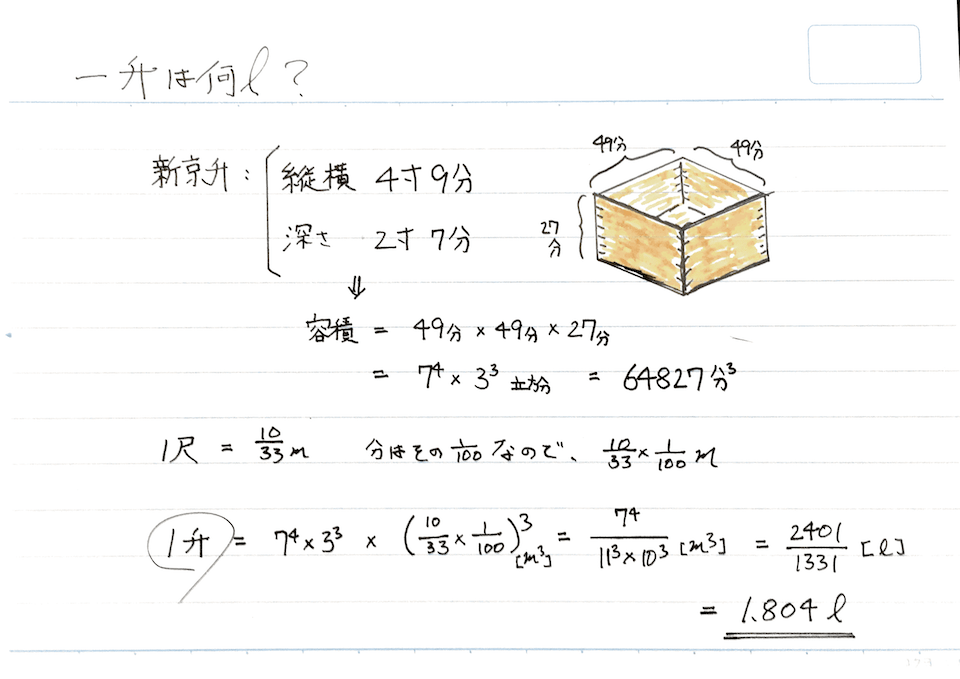 一升は何ℓ?
新京升: 縦横 4寸9分
深さ 2寸7分
49分 49分
27分
⇓
容積 = 49分 × 49分 × 27分
= 7⁴ × 3³ 立方分 = 64827分³
1尺 = 10/33 m 分はその 1/100 なので、 10/33 × 1/100 m
1升 = 7⁴ × 3³ × (10/33 × 1/100)³ [m³] = 7⁴/(11³ × 10³) [m³] = 2401/1331 [ℓ]
= 1.804 ℓ